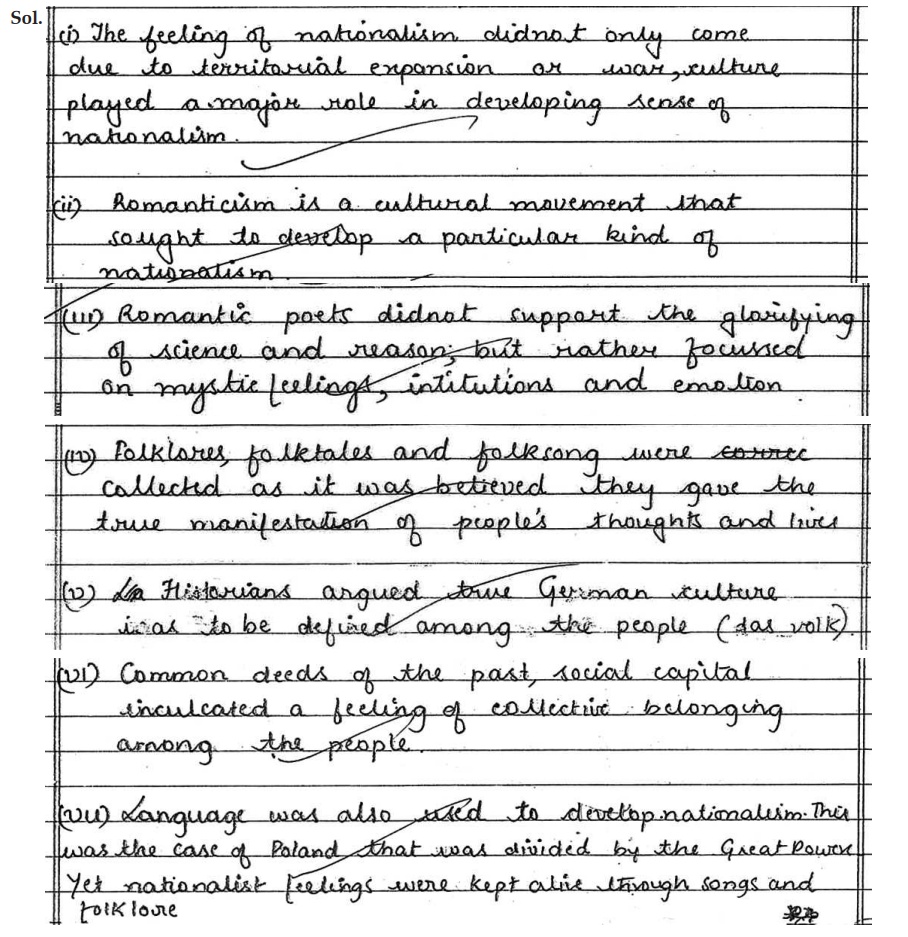 Sol.
(i) The feeling of nationalism didnot only come
due to territorial expansion or war, culture
played a major role in developing sense of
nationalism.
(ii) Romanticism is a cultural movement that
sought to develop a particular kind of
nationalism.
(iii) Romantic poets didnot support the glorifying
of science and reason; but rather focussed
on mystic feelings, intitutions and emotion
(iv) Folklores, folktales and folksong were
collected as it was betieved they gave the
true manifestation of people's thoughts and lives
(v) Historians argued true German culture
was to be defined among the people (das volk).
(vi) Common deeds of the past, social capital
inculcated a feeling of collective belonging
among the people.
(vii) Language was also used to develop nationalism. This
was the case of Poland that was divided by the Great Power
Yet nationalist feelings were kept alive through songs and
folklore